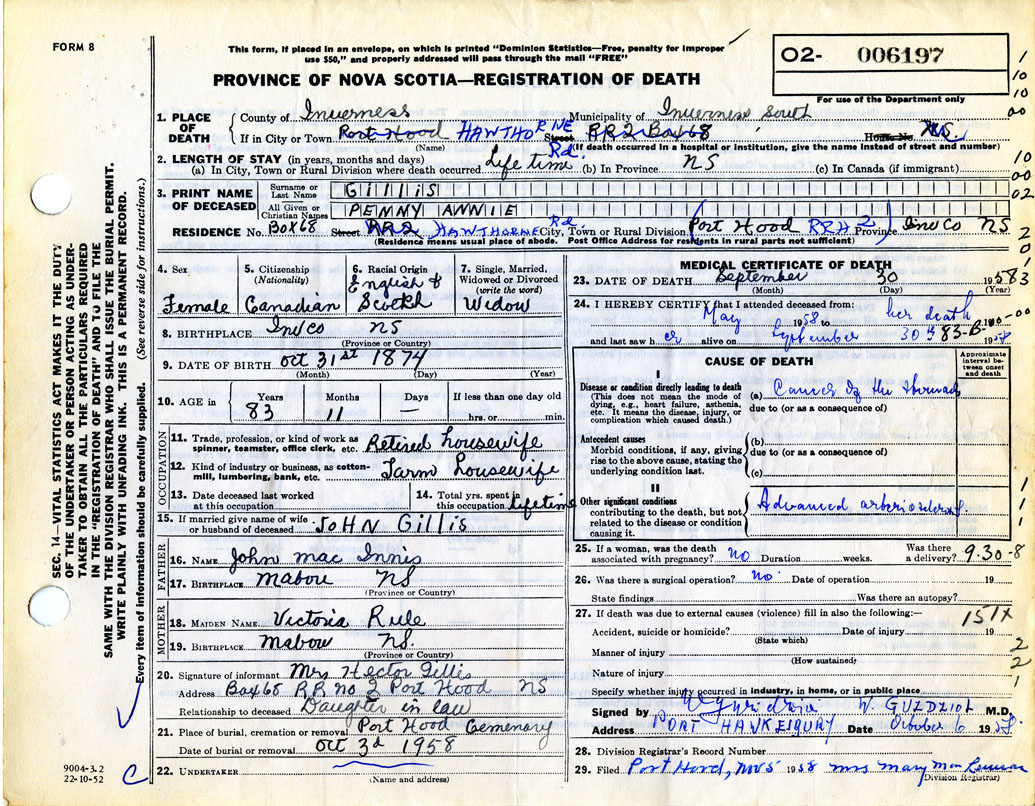 FORM 8
This form, if placed in an envelope, on which is printed "Dominion Statistics—Free, penalty for improper
use $50," and properly addressed will pass through the mail "FREE"
O2- 006197
For use of the Department only
PROVINCE OF NOVA SCOTIA—REGISTRATION OF DEATH
1. PLACE OF DEATH { County of Inverness Municipality of Inverness South
If in City or Town Port Hood HAWTHORNE Rd. Street RR2 Box 68 House No. NS.
(Name) (If death occurred in a hospital or institution, give the name instead of street and number)
2. LENGTH OF STAY (in years, months and days)
(a) In City, Town or Rural Division where death occurred Life time (b) In Province NS (c) In Canada (if immigrant)
3. PRINT NAME OF DECEASED
Surname or Last Name Gillis
All Given or Christian Names PENNY ANNIE
RESIDENCE No. Box 68 Street RR2 HAWTHORNE Rd City, Town or Rural Division (Port Hood RR#2) Province Inv Co NS
(Residence means usual place of abode. Post Office Address for residents in rural parts not sufficient)
4. Sex Female
5. Citizenship (Nationality) Canadian
6. Racial Origin English & Scotch
7. Single, Married, Widowed or Divorced (write the word) Widow
8. BIRTHPLACE Inv co NS
(Province or Country)
9. DATE OF BIRTH Oct 31st 1874
(Month) (Day) (Year)
10. AGE in { Years 83 Months 11 Days — If less than one day old hrs. or min.
OCCUPATION
11. Trade, profession, or kind of work as spinner, teamster, office clerk, etc. Retired housewife
12. Kind of industry or business, as cotton-mill, lumbering, bank, etc. Farm housewife
13. Date deceased last worked at this occupation
14. Total yrs. spent in this occupation lifetime
15. If married give name of wife or husband of deceased JOHN Gillis
FATHER
16. NAME John Mac Innis
17. BIRTHPLACE Mabou NS
(Province or Country)
MOTHER
18. MAIDEN NAME Victoria Rule
19. BIRTHPLACE Mabou NS.
(Province or Country)
20. Signature of informant Mrs Hector Gillis
Address Box 68 RR no 2 Port Hood NS
Relationship to deceased Daughter in law
21. Place of burial, cremation or removal Port Hood Cemenary
Date of burial or removal Oct 3d 1958
22. UNDERTAKER
(Name and address)
MEDICAL CERTIFICATE OF DEATH
23. DATE OF DEATH September 30 1958
(Month) (Day) (Year)
24. I HEREBY CERTIFY that I attended deceased from:
May 1958 to her death 19
and last saw her alive on September 30th 83-B 19
CAUSE OF DEATH
Approximate interval between onset and death
I
Disease or condition directly leading to death
(This does not mean the mode of dying, e.g., heart failure, asthenia, etc. It means the disease, injury, or complication which caused death.)
(a) Cancer of the stomach
due to (or as a consequence of)
Antecedent causes
Morbid conditions, if any, giving rise to the above cause, stating the underlying condition last.
(b)
due to (or as a consequence of)
(c)
II
Other significant conditions
contributing to the death, but not related to the disease or condition causing it.
Advanced arteriosclerosis.
25. If a woman, was the death associated with pregnancy? no Duration weeks. Was there a delivery? 9-30-8
26. Was there a surgical operation? no. Date of operation 19
State findings Was there an autopsy?
27. If death was due to external causes (violence) fill in also the following:— 151X
Accident, suicide or homicide? Date of injury 19
(State which)
Manner of injury
(How sustained)
Nature of injury
Specify whether injury occurred in industry, in home, or in public place
Signed by W. GUZDZIOL M.D.
Address PORT HAWKESBURY Date October 6 1958.
28. Division Registrar's Record Number
29. Filed Port Hood, Nov 5 1958 Mrs Mary MacLennan
(Division Registrar)
SEC. 14—VITAL STATISTICS ACT MAKES IT THE DUTY
OF THE UNDERTAKER OR PERSON ACTING AS UNDER
TAKER TO OBTAIN ALL THE PARTICULARS REQUIRED
IN THE "REGISTRATION OF DEATH" AND TO FILE THE
SAME WITH THE DIVISION REGISTRAR WHO SHALL ISSUE THE BURIAL PERMIT.
WRITE PLAINLY WITH UNFADING INK. THIS IS A PERMANENT RECORD.
Every item of information should be carefully supplied. (See reverse side for instructions.)
9004-3.2
22-10-52
C